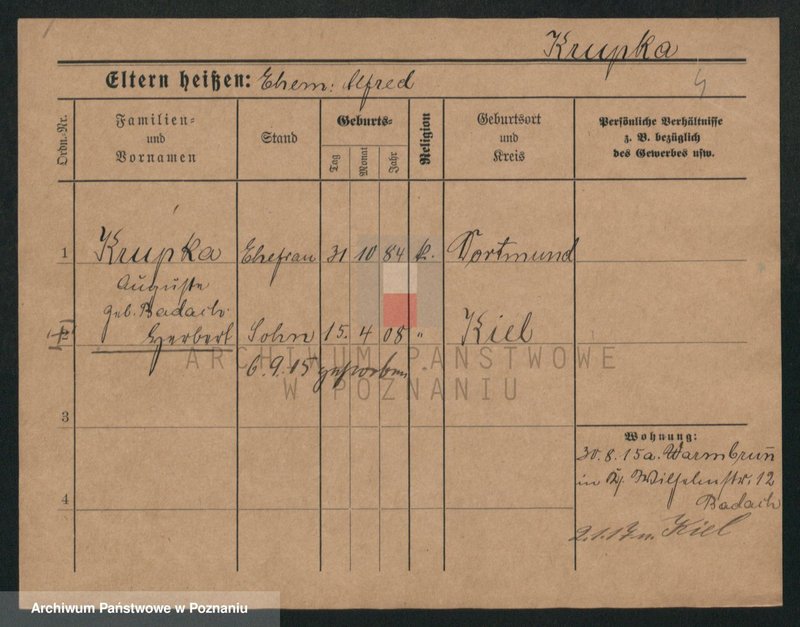 Krupka
Eltern heißen: Ehem: Alfred
Ordn.-Nr.
Familien-
und
Vornamen
Stand
Geburts-
Tag
Monat
Jahr
Religion
Geburtsort
und
Kreis
Persönliche Verhältnisse
z. B. bezüglich
des Gewerbes usw.
1 Krupka Ehefrau 31 10 84 k. Dortmund
Auguste
geb. Badach
2 Herbert Sohn 15. 4 08 " Kiel
6.9.15 gestorben
ARCHIWUM PAŃSTWOWE
W POZNANIU
3
Wohnung:
30.8.15 a. Warmbrunn
in Wilhelmstr. 12
Badach
4
2.1.17 n. Kiel
Archiwum Państwowe w Poznaniu